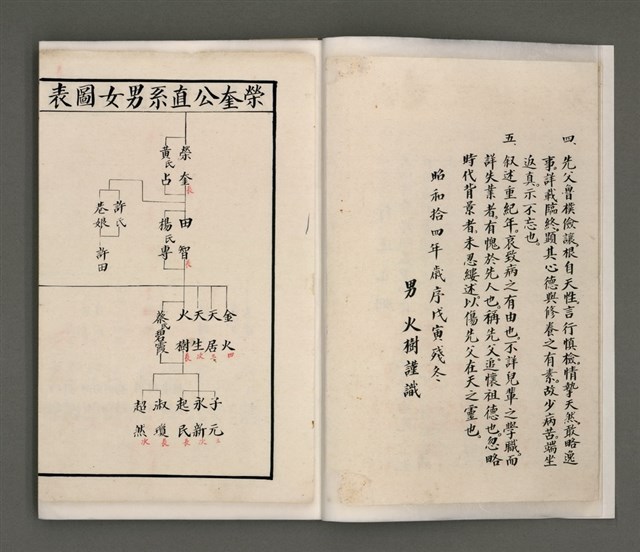 四、先父魯樸儉讓、根自天性、言行慎檢、情摯天然、散略逸
事、詳載臨終、顯其心德與修養之有素、故少病苦、端坐
返真、示不忘也。
五、叙述重紀年、哀致病之有由也、不詳兒輩之學職、而
詳失業者、有愧於先人也、稱先父追懷祖德也、忽略
時代背景者、未忍縷述、以傷先父在天之靈也。
昭和拾四年歲序戊寅殘冬
男 火樹謹識
榮奎公直系男女圖表
榮奎 長
黃氏占
由智 長
楊氏專
許氏
巻娘
許田
金火 四
天居 三
天生 次
火樹 長
蔡氏碧霞
子元 三
永新 次
起民 長
淑瓊 長
超然 次